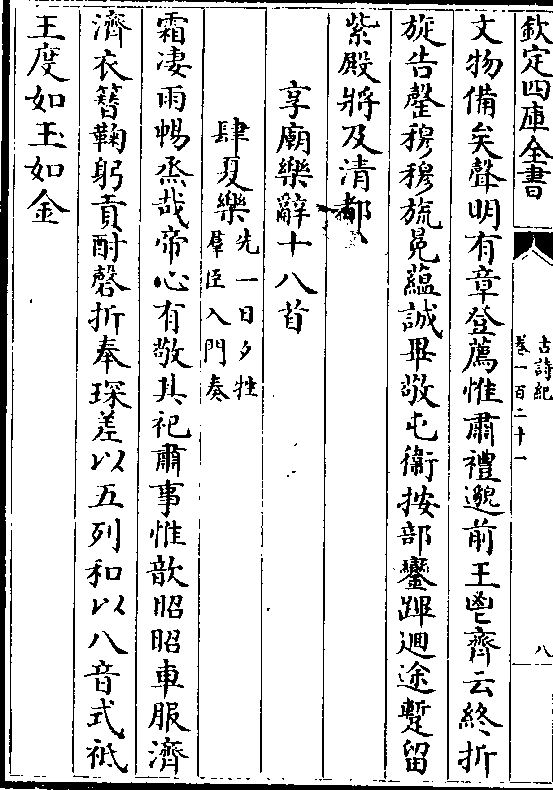 欽定四庫全書
古詩紀
卷一百二十一
八
文物備矣聲明有章登薦惟肅禮邈前王鬯齊云終折
旋告罄穆穆旒冕藴誠畢敬屯衛按部鑾蹕迴途蹔留
紫殿將及清都
享廟樂辭十八首
肆夏樂
先一日夕牲
羣臣入門奏
霜凄雨暢烝哉帝心有敬其祀肅事惟歆昭昭車服濟
濟衣簪鞠躬貢酎磬折奉琛差以五列和以八音式祗
王度如玉如金